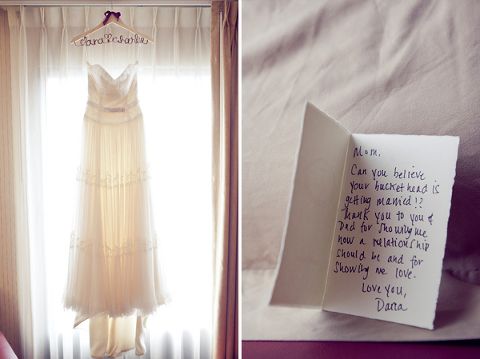 Mom,
Can you believe
your bucket head is
getting married!?
Thank you to you &
Dad for showing me
how a relationship
should be and for
showing me love.
Love you,
Dana